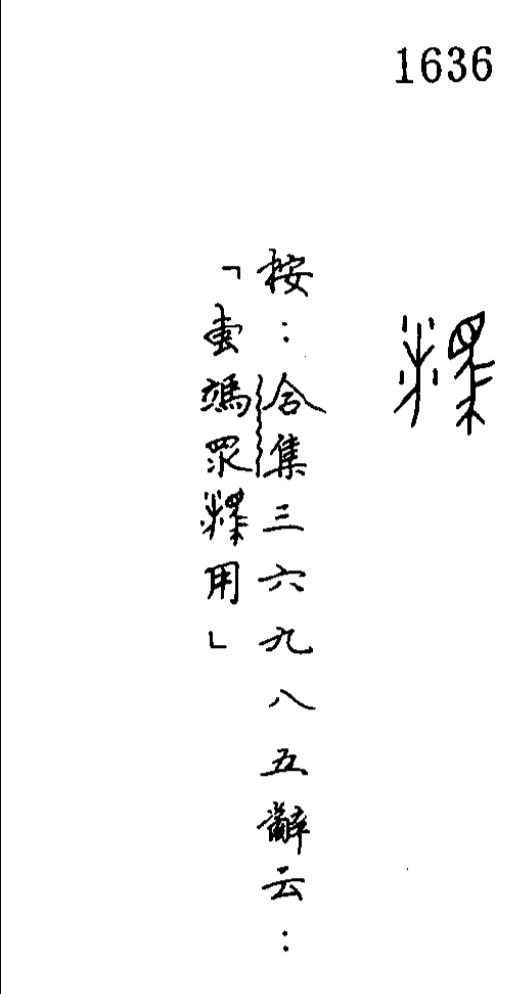 1636
按：合集三六九八五辭云：
「叀䮵眔用」